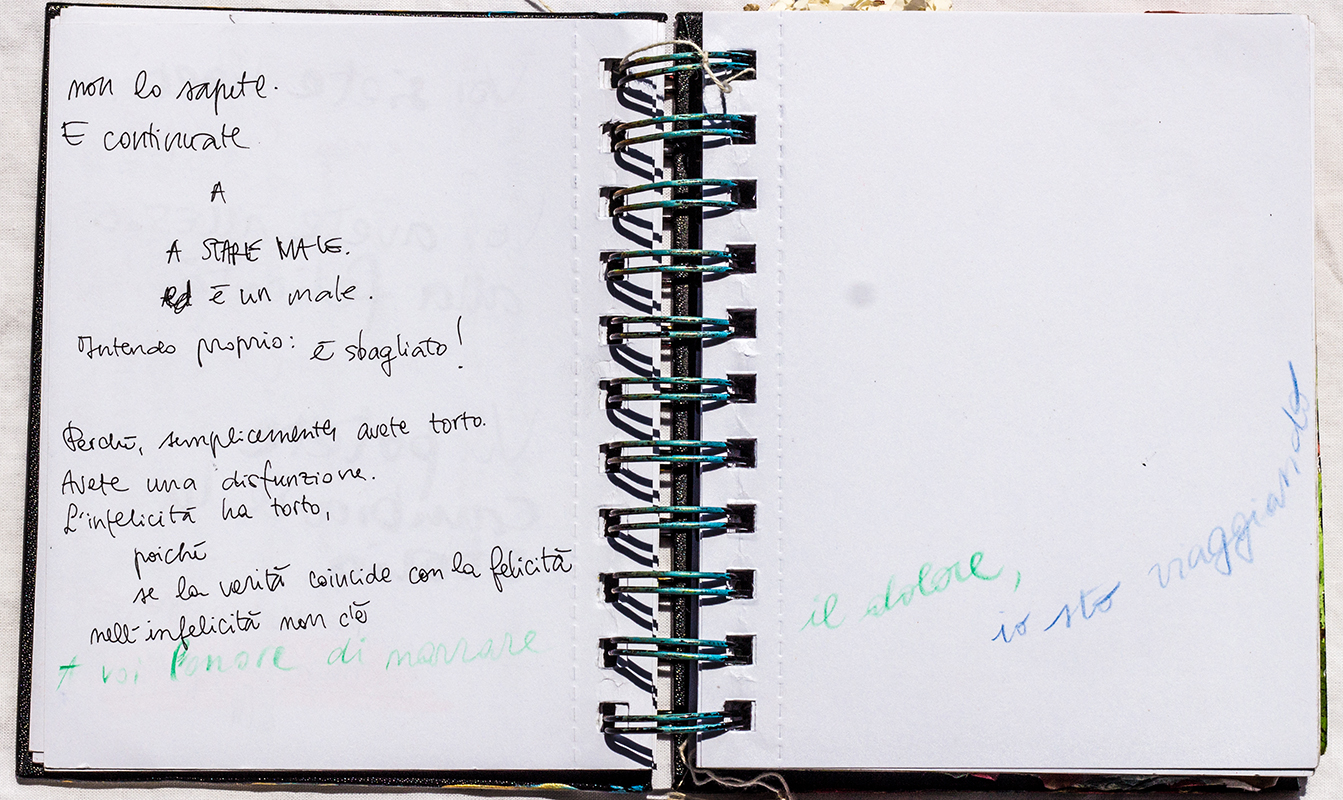 non lo sapete.
E continuate
A
A STARE MALE.
è un male.
Intendo proprio: è sbagliato!
Perché, semplicemente, avete torto.
Avete una disfunzione.
L'infelicità ha torto,
poiché
se la verità coincide con la felicità
nell'infelicità non c'è
A voi l'onore di narrare
il dolore,
io sto viaggiando